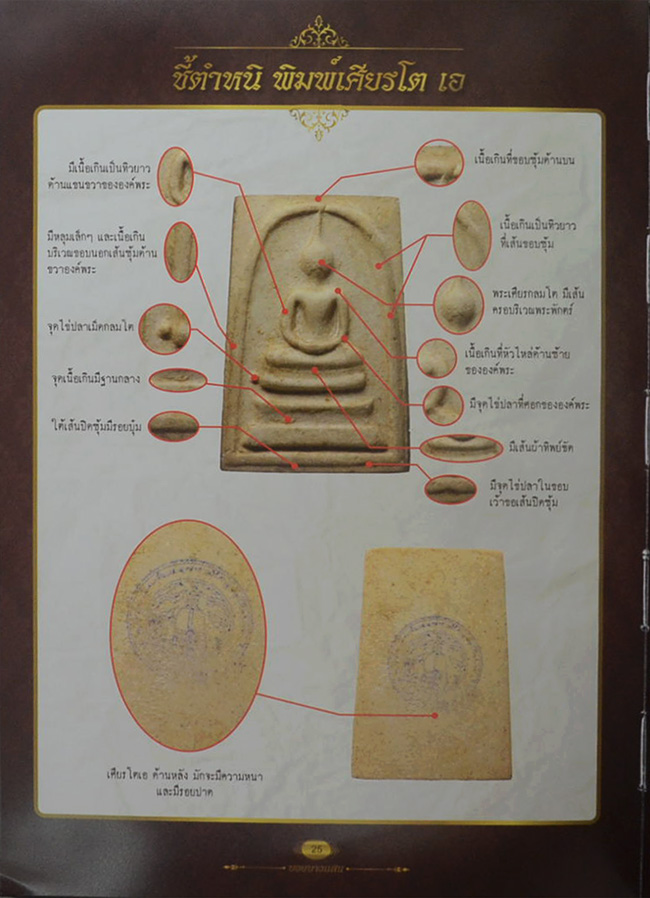 ชี้ตำหนิ พิมพ์เศียรโต เอ
มีเนื้อเกินเป็นทิวยาว
ด้านแขนขวาขององค์พระ
มีหลุมเล็กๆ และเนื้อเกิน
บริเวณขอบนอกเส้นซุ้มด้าน
ขวาองค์พระ
จุดไข่ปลาเม็ดกลมโต
จุดเนื้อเกินมีฐานกลาง
ใต้เส้นปิดซุ้มมีรอยนุ้ม
เนื้อเกินที่ขอบซุ้มด้านบน
เนื้อเกินเป็นทิวยาว
ที่เส้นขอบซุ้ม
พระเศียรกลมโต มีเส้น
ครอบริเวณพระพักตร์
เนื้อเกินที่หัวไหล่ด้านซ้าย
ขององค์พระ
มีจุดไข่ปลาที่ศอกขององค์พระ
มีเส้นผ้าทิพย์ชัด
มีจุดไข่ปลาในขอบ
เว้าขอเส้นปิดซุ้ม
เศียรโตเอ ด้านหลัง มักจะมีความหนา
และมีรอยปาด
25